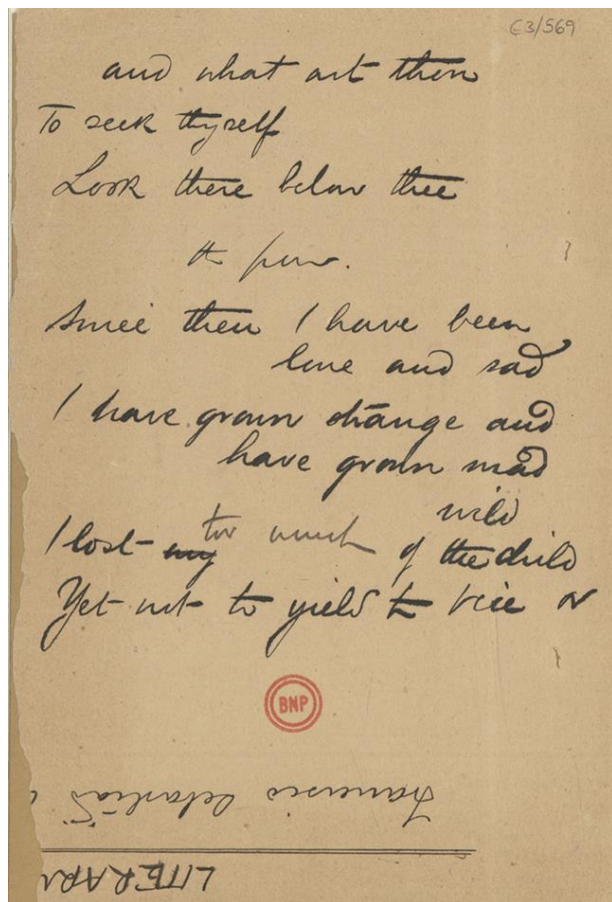 E3/569
and what art thou
To seek thyself
Look there below thee
Since then I have been
lone and sad
I have grown strange and
have grown mad
wild
I lost my too much of the child
Yet not to yield to vice or
BNP
Francisco Sebastião
LITERARY